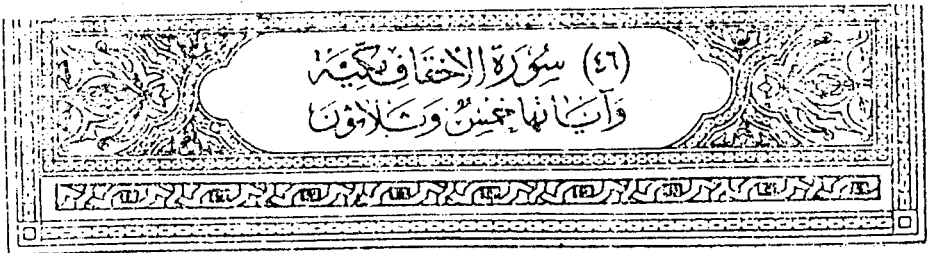 (٤٦) سُورَة الأحقاف مَكيّة
وَآيَاتُهَا خمسٌ وَثَلاثُون